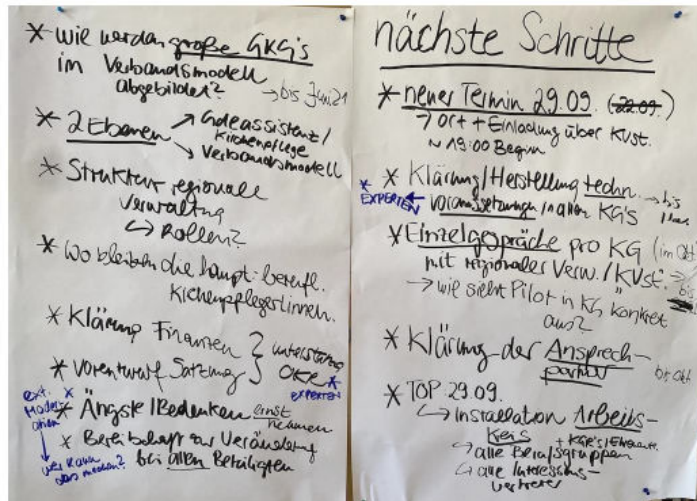 * wie werden große GKG's
im Verbandsmodell
abgebildet?
→ bis Juni 21
* 2 Ebenen
↗ Gdeassistenz/
Kirchenpflege
↘ Verbandsmodell
* Struktur regionale
Verwaltung
↳ Rollen?
* Wo bleiben die haupt-berufl.
KirchenpflegerInnen.
* Klärung Finanzen
* Vorentwurf Satzung
} unterstützg
OKR *
EXPERTEN
ext. *
Moder-
ation
↓
wer kann
das machen?
* Ängste/Bedenken ernst
nehmen
* Bereitschaft zur Veränderung
bei allen Beteiligten
nächste Schritte
* neuer Termin 29.09. (22.09.)
→ Ort + Einladung über KVSt.
~ 19:00 Beginn
* Klärung/Herstellung techn.
* EXPERTEN ← Voraussetzungen in allen KG's
→ bis
* Einzelgespräche pro KG (im Okt
mit regionaler Verw./KVSt. →
bis
→ wie sieht Pilot in KG konkret
aus?
* Klärung der Ansprech-
partner
bis Okt
* TOP 29.09.
↳ Installation Arbeits-
kreis
→ alle Berufsgruppen
↳ alle Interessens-
vertreter